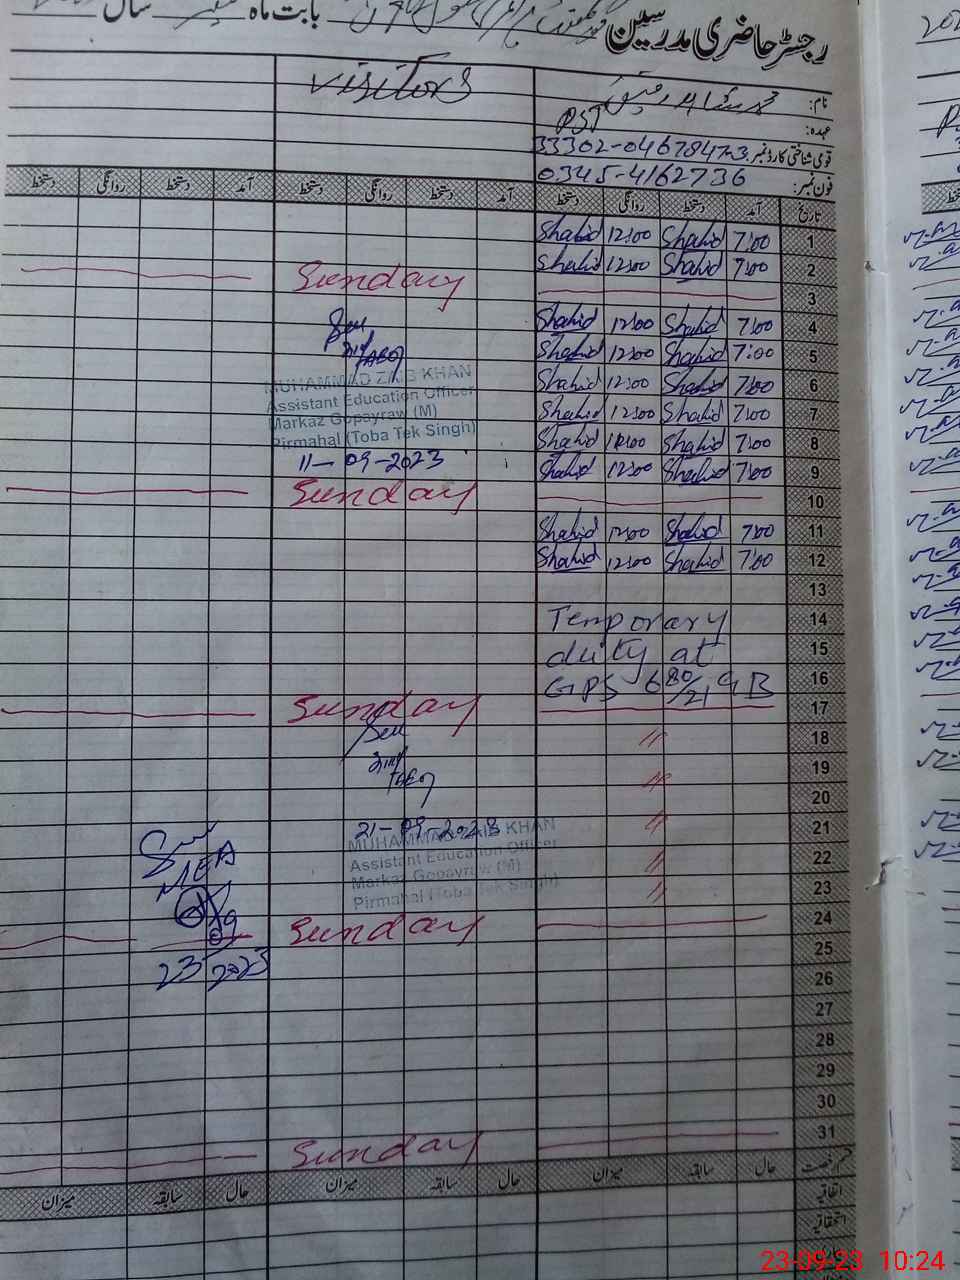 رجسٹر حاضری مدرسین
بابت ماہ ستمبر سال
نام: محمد شاہد رفیق Visitors
عہدہ: PST
قومی شناختی کارڈ نمبر: 33302-0467847-3
فون نمبر: 0345-4162736
تاریخ آمد دستخط روانگی دستخط آمد دستخط روانگی دستخط آمد دستخط روانگی دستخط
1 7:00 Shahid 12:00 Shahid
2 7:00 Shahid 12:00 Shahid
3 Sunday
4 7:00 Shahid 12:00 Shahid
5 7:00 Shahid 12:00 Shahid
6 7:00 Shahid 12:00 Shahid
7 7:00 Shahid 12:00 Shahid
8 7:00 Shahid 12:00 Shahid
9 7:00 Shahid 12:00 Shahid
MUHAMMAD ZAIB KHAN
Assistant Education Officer
Markaz Gopayraw (M)
Pirmahal (Toba Tek Singh)
11-09-2023
10 Sunday
11 7:00 Shahid 12:00 Shahid
12 7:00 Shahid 12:00 Shahid
13
14 Temporary
15 duty at
16 GPS 680/21 GB
17 Sunday
18 "
19 "
20
21 "
22 "
23 "
21-09-2023
MUHAMMAD ZAIB KHAN
Assistant Education Officer
Markaz Gopayraw (M)
Pirmahal (Toba Tek Singh)
MEA
09
23 2023
24 Sunday
25
26
27
28
29
30
31 Sunday
قسم رخصت حال سابقہ میزان حال سابقہ میزان حال سابقہ میزان
اتفاقیہ
استحقاقیہ
23-09-23 10:24